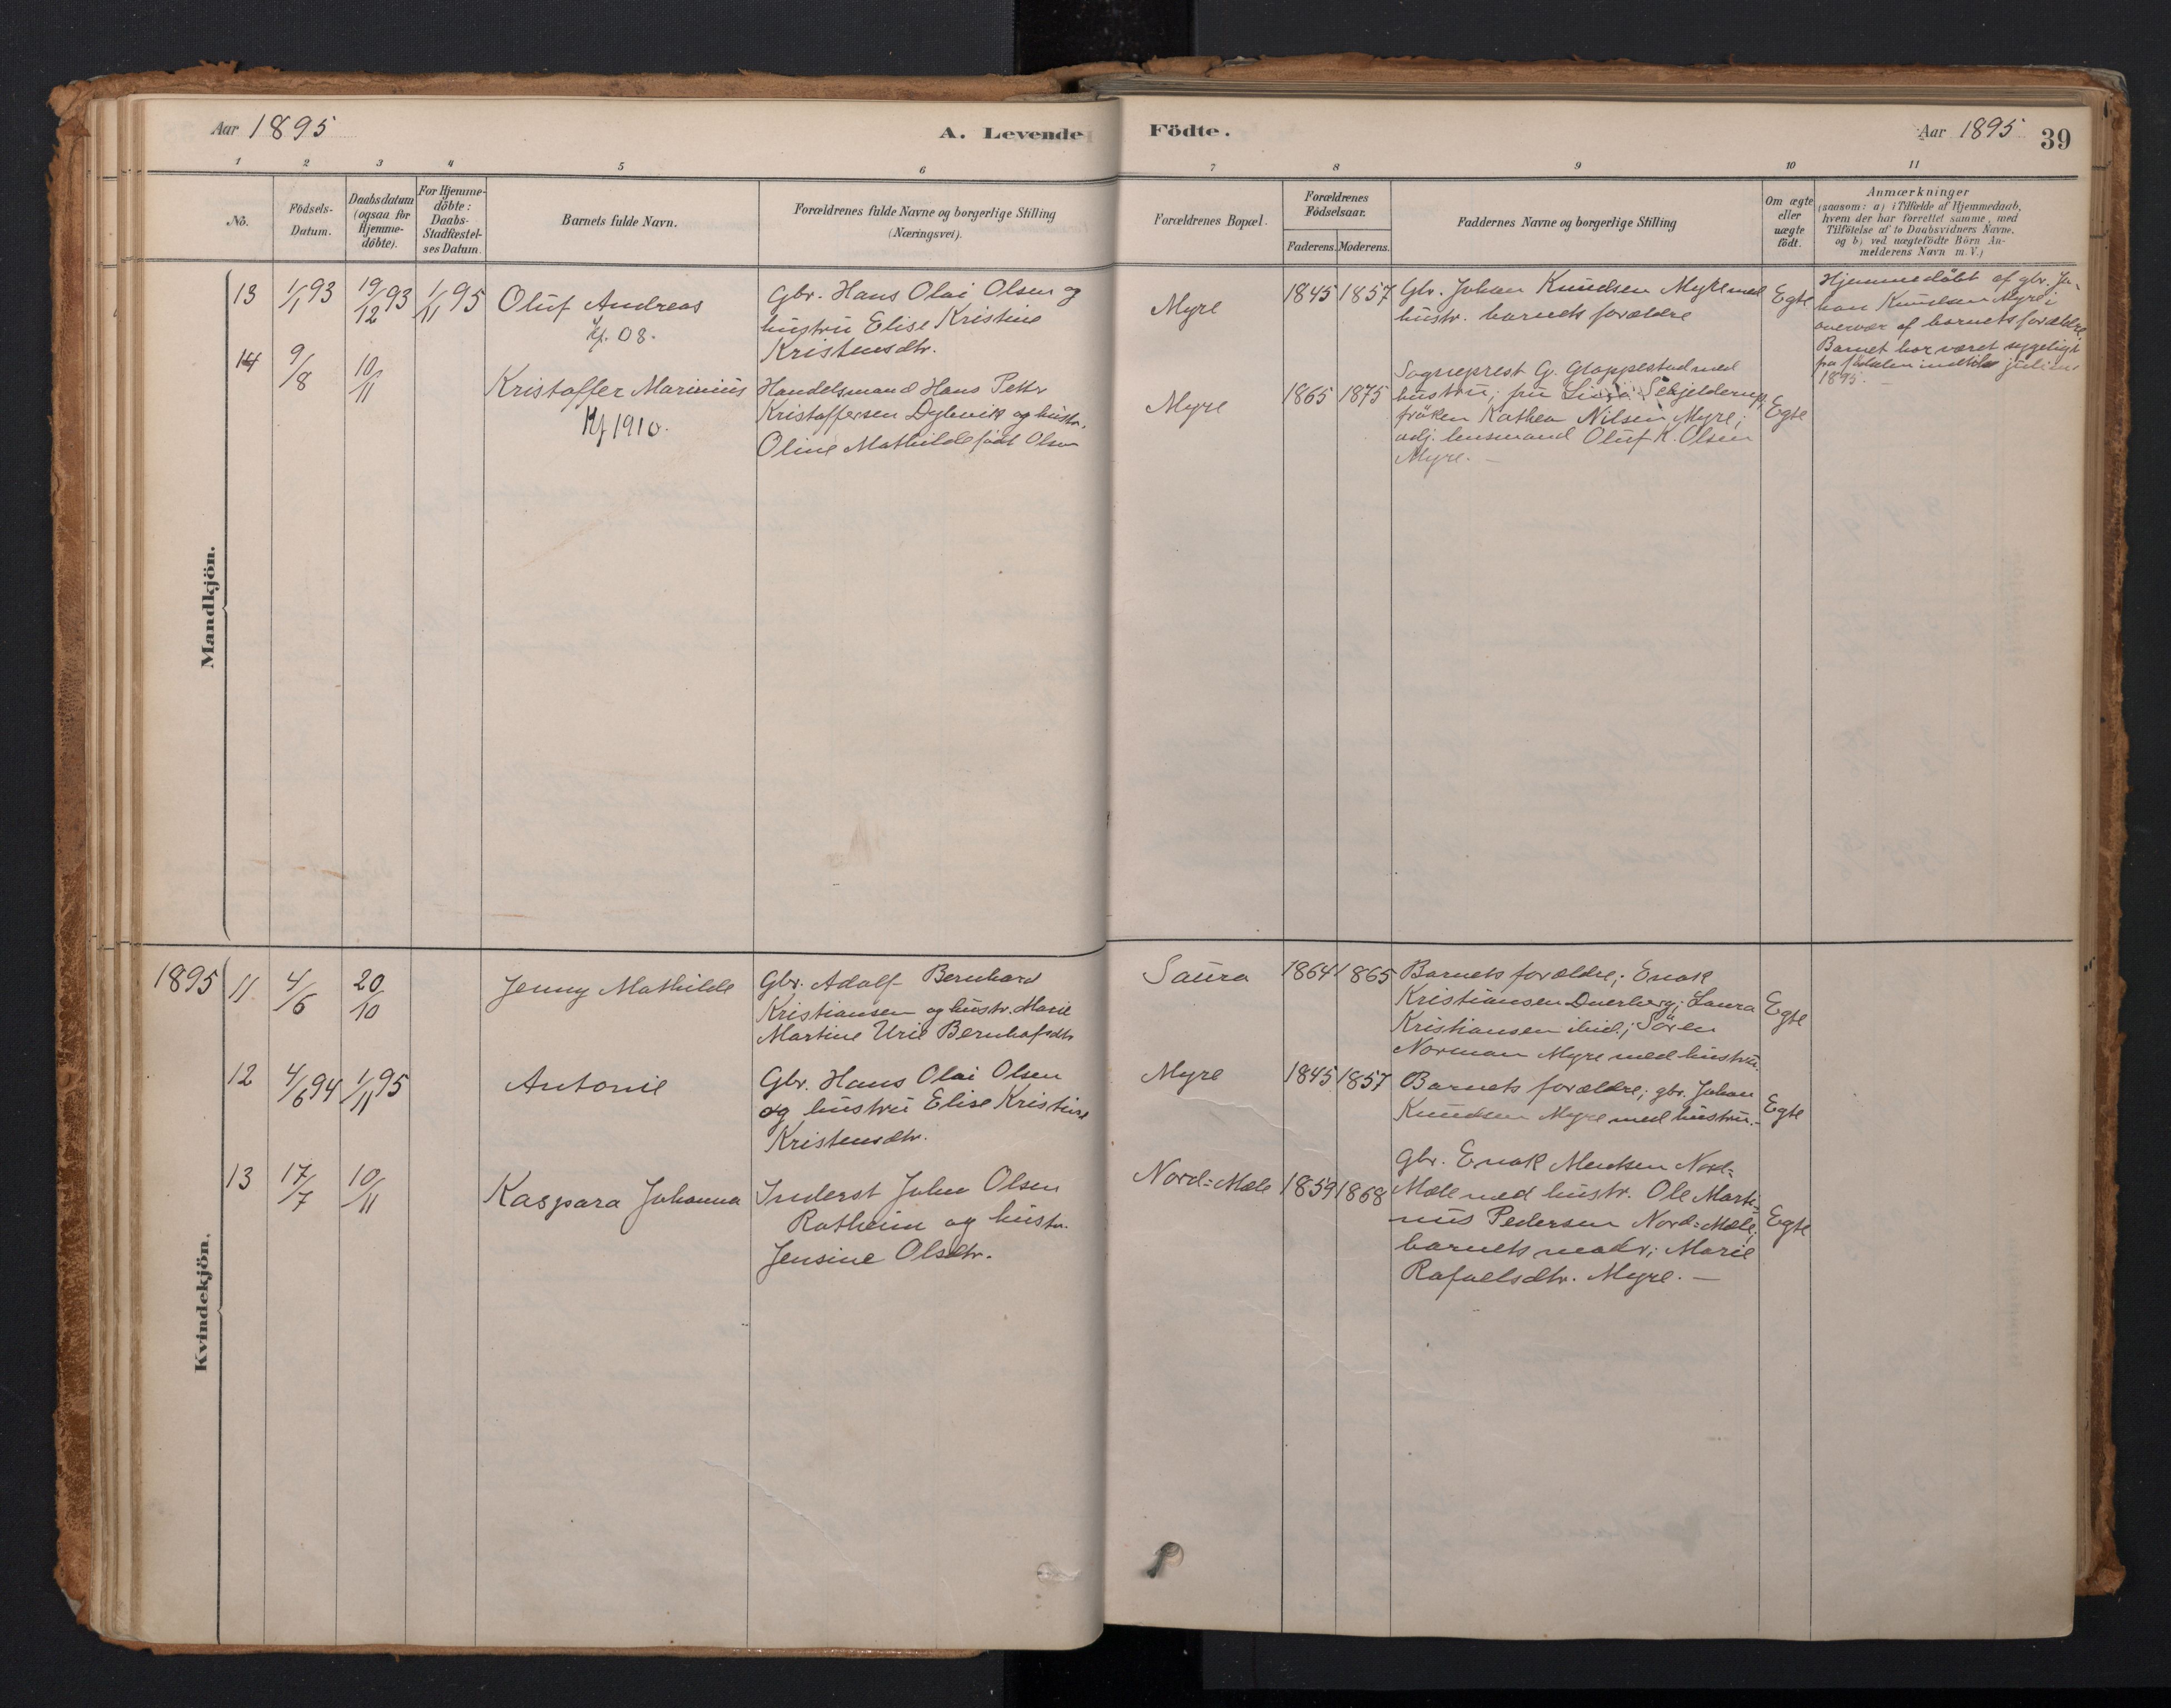 Aar 1895
A. Levende Födte.
Aar 1895 39
1 2 3 4 5 6 7 8 9 10 11
No.
Födsels-
Datum.
Daabsdatum
(ogsaa for
Hjemme-
döbte).
For Hjemme-
döbte:
Daabs-
Stadfæstel-
ses Datum.
Barnets fulde Navn.
Forældrenes fulde Navne og borgerlige Stilling
(Næringsvei).
Forældrenes Bopæl.
Forældrenes
Födselsaar.
Faderens. Moderens.
Faddernes Navne og borgerlige Stilling
Om ægte
eller
uægte
födt.
Anmærkninger
(saasom: a) i Tilfælde af Hjemmedaab,
hvem der har forrettet samme, med
Tilföielse af to Daabsvidners Navne,
og b) ved uægtefödte Börn An-
melderens Navn m. V.)
Mandkjön.
13 1/1 93 19/12 93 1/11 95
Oluf Andreas
Kf. 08.
Gbr. Hans Olai Olsen og
hustru Elise Kristine
Kristensdtr.
Myre
1845 1857
Gbr. Johan Knudsen Myre med
hustr. barnets forældre
Egte
Hjemmedöbt af gbr. Jo-
han Knudsen Myre i
overvær af barnets forældre.
Barnet har været sygeligt
fra födselen indtil juli
1895.
14 9/8 10/11
Kristoffer Marinius
Kf 1910.
Handelsmand Hans Petter
Kristoffersen Dybvik og hustr.
Oline Mathilde födt Olsen
Myre
1865 1875
Sogneprest G. Gloppestad med
hustru; fru
fröken Kathea Nilsen Myre;
adj. lensmand Oluf K. Olsen
Myre. —
Egte
Kvindekjön.
1895 11 4/6 20/10
Jenny Mathilde
Gbr. Adolf Bernhard
Kristiansen og hustr. Marie
Martine Urie
Saura
1864 1865
Barnets forældre; Enok
Kristiansen Duerberg; Laura
Kristiansen ibid.; Sören
Norman Myre med hustru.
Egte
12 4/6 94 1/11 95
Antonie
Gbr. Hans Olai Olsen
og hustru Elise Kristine
Kristensdtr.
Myre
1845 1857
Barnets forældre; gbr. Johan
Knudsen Myre med hustru. -
Egte
13 17/7 10/11
Kaspara Johanna
Inderst John Olsen
Ratheim og hustr.
Jensine Olsdtr.
Nord=Mæle
1859 1868
Gbr. Enok Nord=
Mæle med hustr. Ole Marti-
nus Pedersen Nord=Mæle;
barnets moder; Marie
Rafaelsdtr. Myre. —
Egte